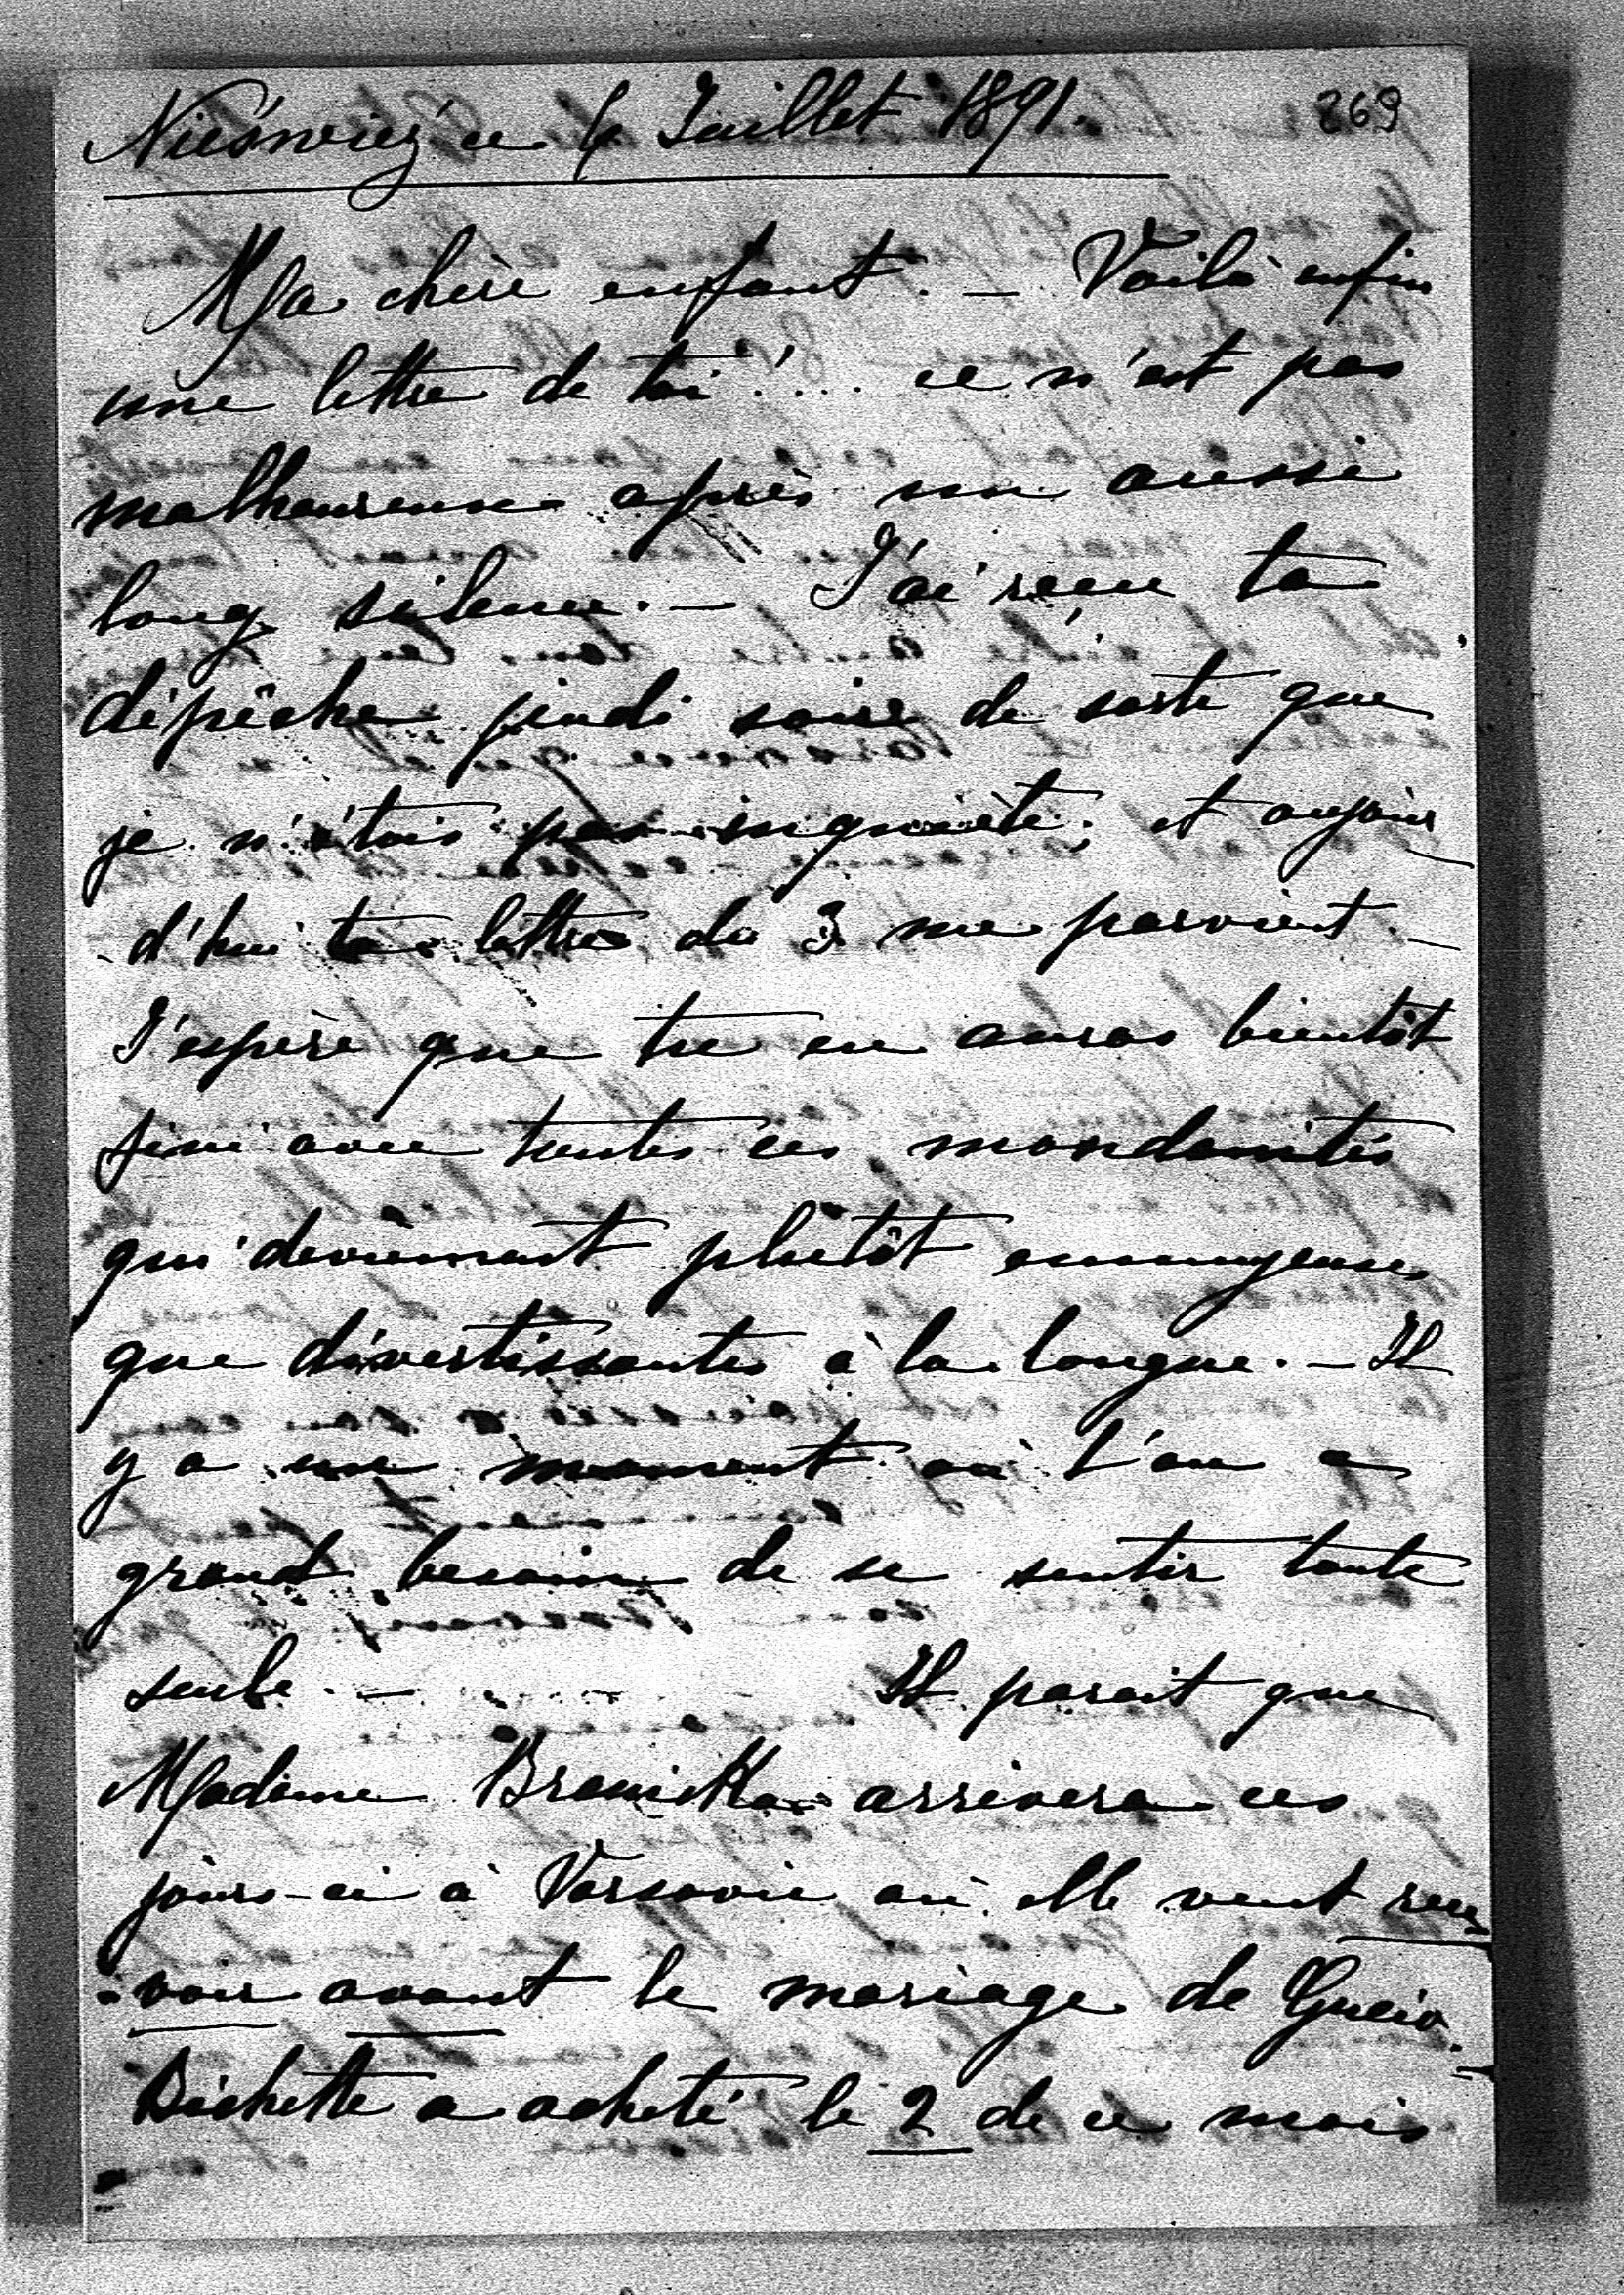 Nieświeź ce 6 Juillet 1891. 269
Ma chère enfant. — Voilà enfin
une lettre de toi!... ce n'est pas
malheureux après un aussi
long silence. — J'ai reçu ta
dépêche jeudi soir de sorte que
je n'étais pas inquiète, et aujour
d'hui ta lettre du 3 me parvient. —
J'espère que tu en auras bientôt
fini avec toutes ces mondanités
qui deviennent plutôt ennuyeuses
que divertissantes à la longue. — Il
y a un moment où l'on a
grand besoin de se sentir toute
seule. — Il parait que
Madame Branicka arrivera ces
jours-ci à Varsovie où elle veut rece
voir avant le mariage de
Bichette a acheté le 2 de ce mois